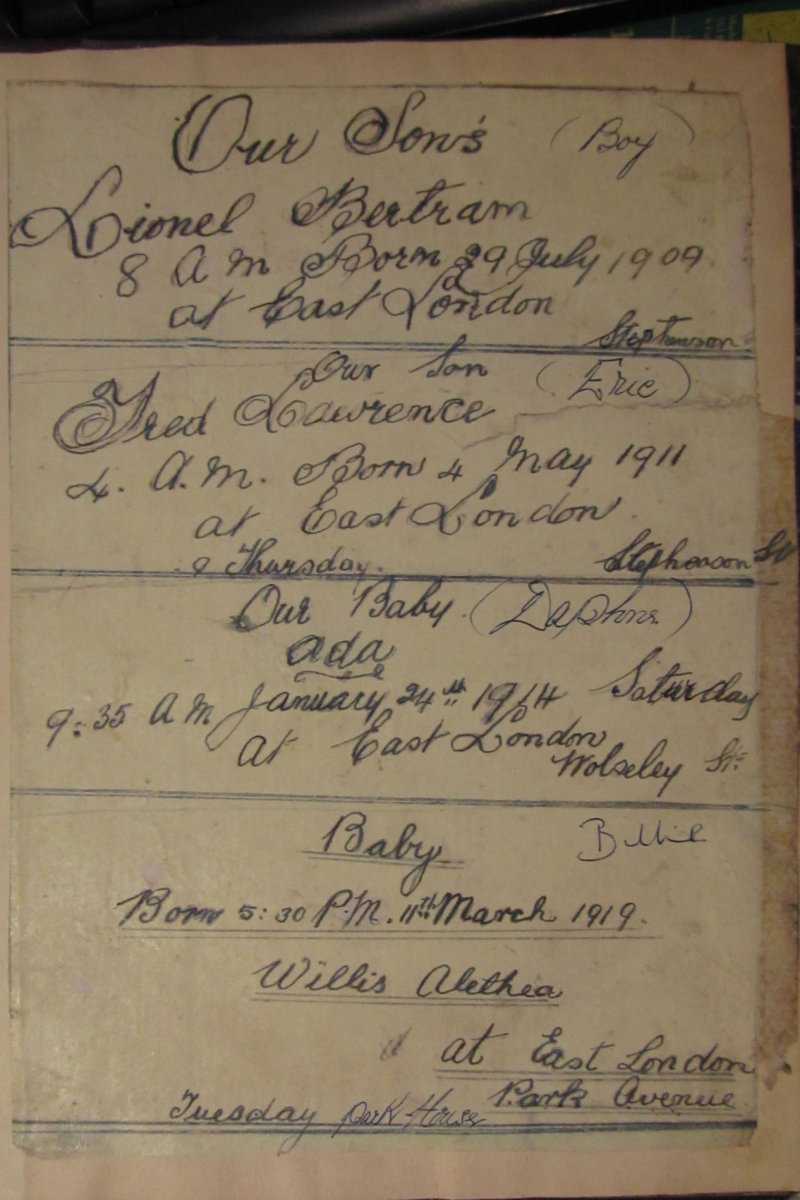 Our Son's (Boy)
Lionel Bertram
8 A m Born 29 July 1909
at East London
Stephenson
Our Son (Eric)
Fred Lawrence
4. A.M. Born 4 May 1911
at East London
Thursday. Stephenson St
Our Baby. (Daphne)
Ada
9:35 A M January 24th 1914 Saturday
at East London
Wolseley St:
Baby Billie
Born 5:30 P.M. 11th March 1919.
Willis Alethea
at East London
Park Avenue
Tuesday Park House